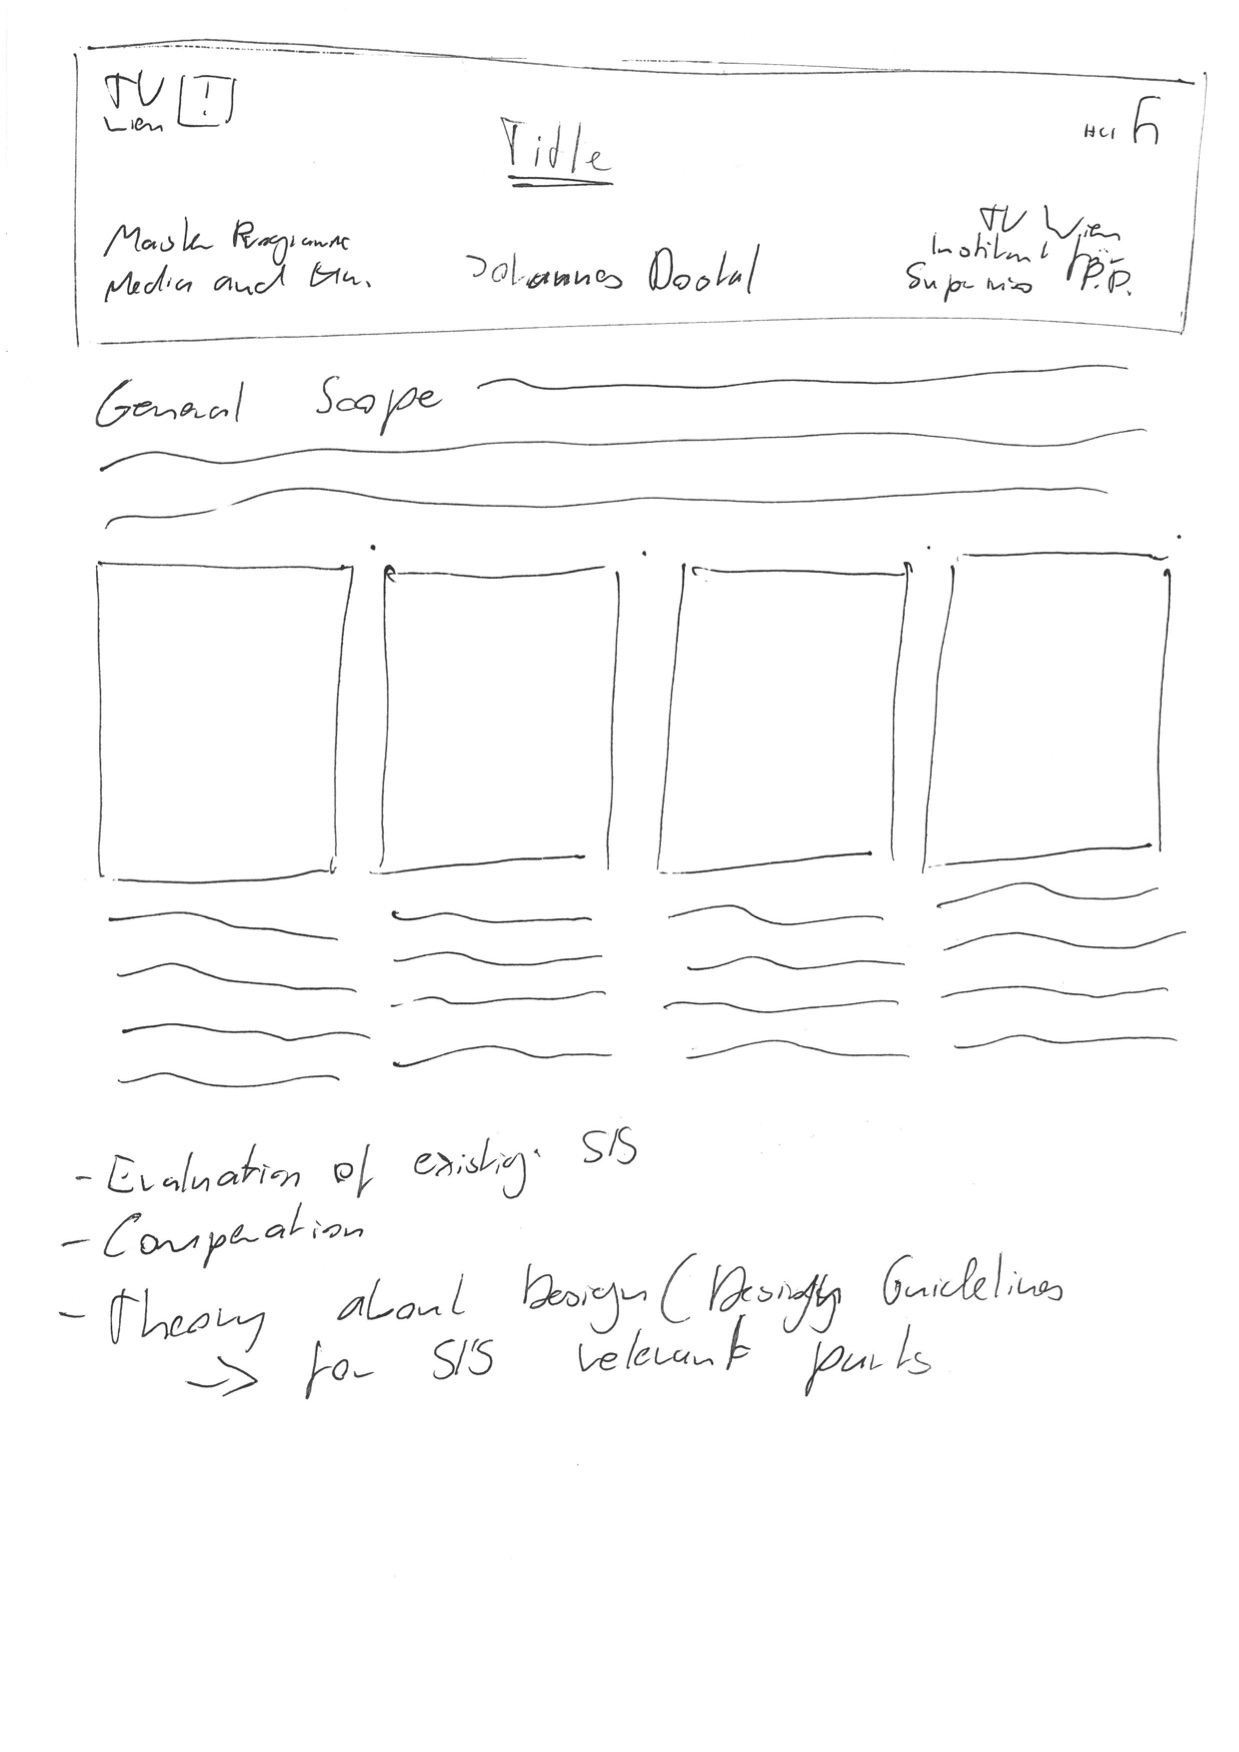 TU
Wien
!
HCI
Title
Master Programme
Media and
Johannes Dostal
TU Wien
Institut für
Supervisor P.P.
General Scope
- Evaluation of existig. SIS
- Comperation
- Theory about Design (Design Guidelines
→ for SIS relevant parts